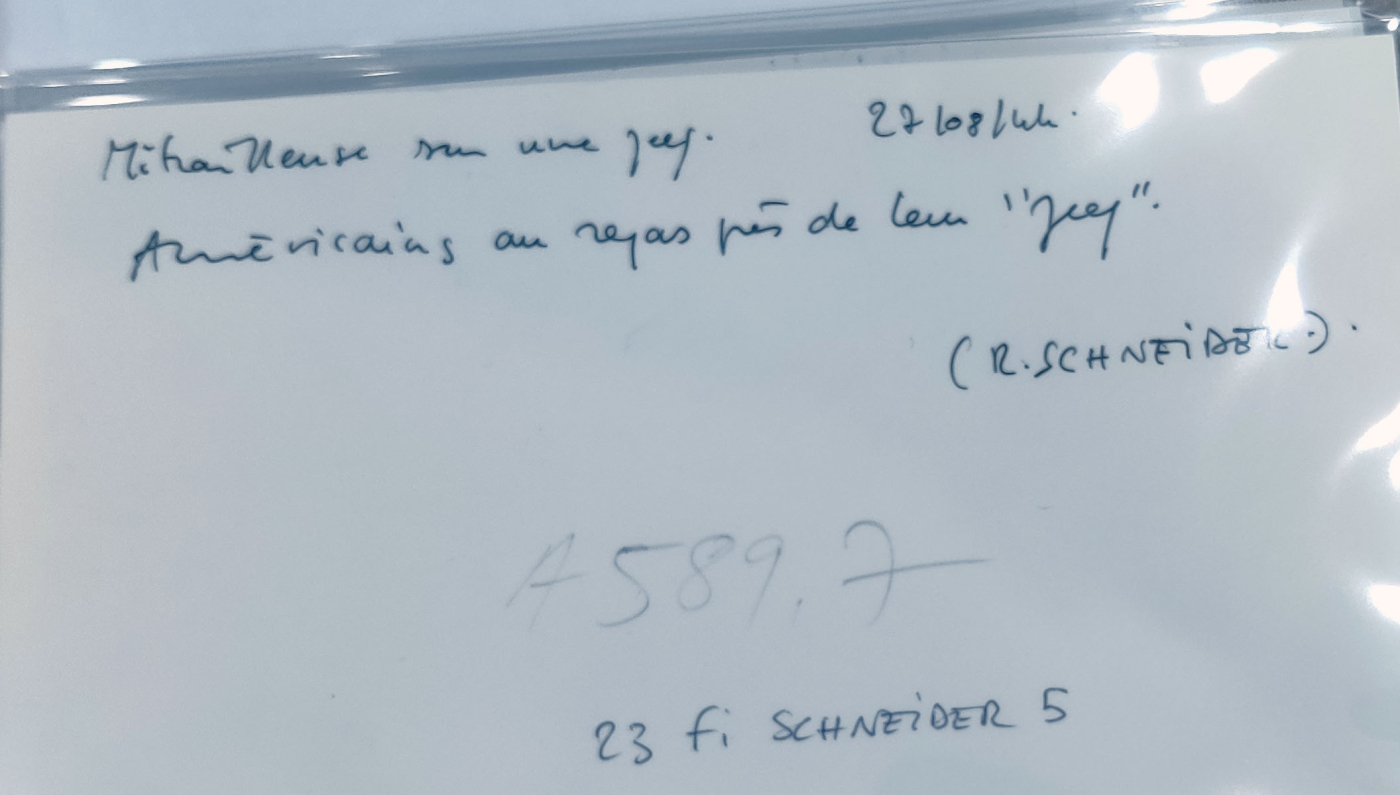 Mitrailleuse sur une jeep. 27/08/44.
Américains au repas près de leur "Jeep".
(R. SCHNEIDER).
A589.7
23 Fi SCHNEIDER 5